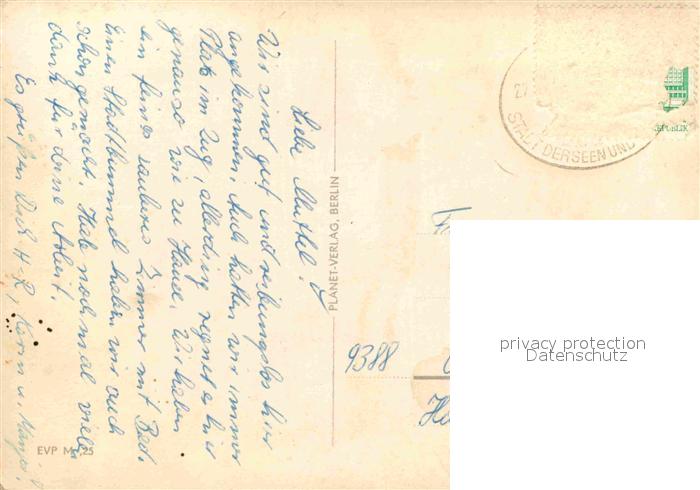 Liebe Muttel!
Wir sind gut und reibungslos hier
angekommen. Auch hatten wir immer
Platz im Zug, allerdings regnet es hier
genauso wie zu Hause. Wir haben
ein feines sauberes Zimmer mit Bad.
Einen Stadtbummel haben wir auch
schon gemacht. Hab nochmal vielen
dank für deine Arbeit.
Es grüßen Dich H-R, Karin u.
PLANET-VERLAG, BERLIN
EVP M -,25
27
STADT DER SEEN UND
9388
privacy protection
Datenschutz